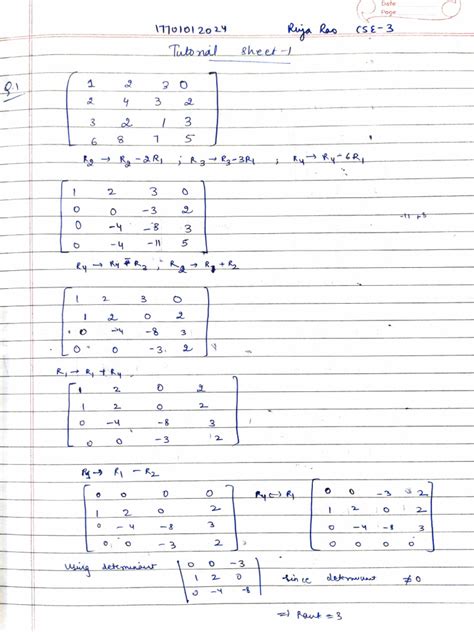 Date
Page
17701012024 Riya Rao CSE-3
Tutorial Sheet-1
Q.1
1 2 3 0
2 4 3 2
3 2 1 3
6 8 7 5
R2 → R2-2R1 ; R3 → R3-3R1 ; R4 → R4-6R1
1 2 3 0
0 0 -3 2
0 -4 -8 3
0 -4 -11 5
-11 +3
R4 → R4 - R3 ; R2 → R2 + R2
1 2 3 0
1 2 0 2
0 -4 -8 3
0 0 -3 2
R1 → R1 + R4
1 2 0 2
1 2 0 2
0 -4 -8 3
0 0 -3 2
R1 → R1 - R2
0 0 0 0
1 2 0 2
0 -4 -8 3
0 0 -3 2
R4 ↔ R1
0 0 -3 2
1 2 0 2
0 -4 -8 3
0 0 0 0
Using determinant
0 0 -3
1 2 0
0 -4 -8
since determinant ≠0
⇒ Rank = 3